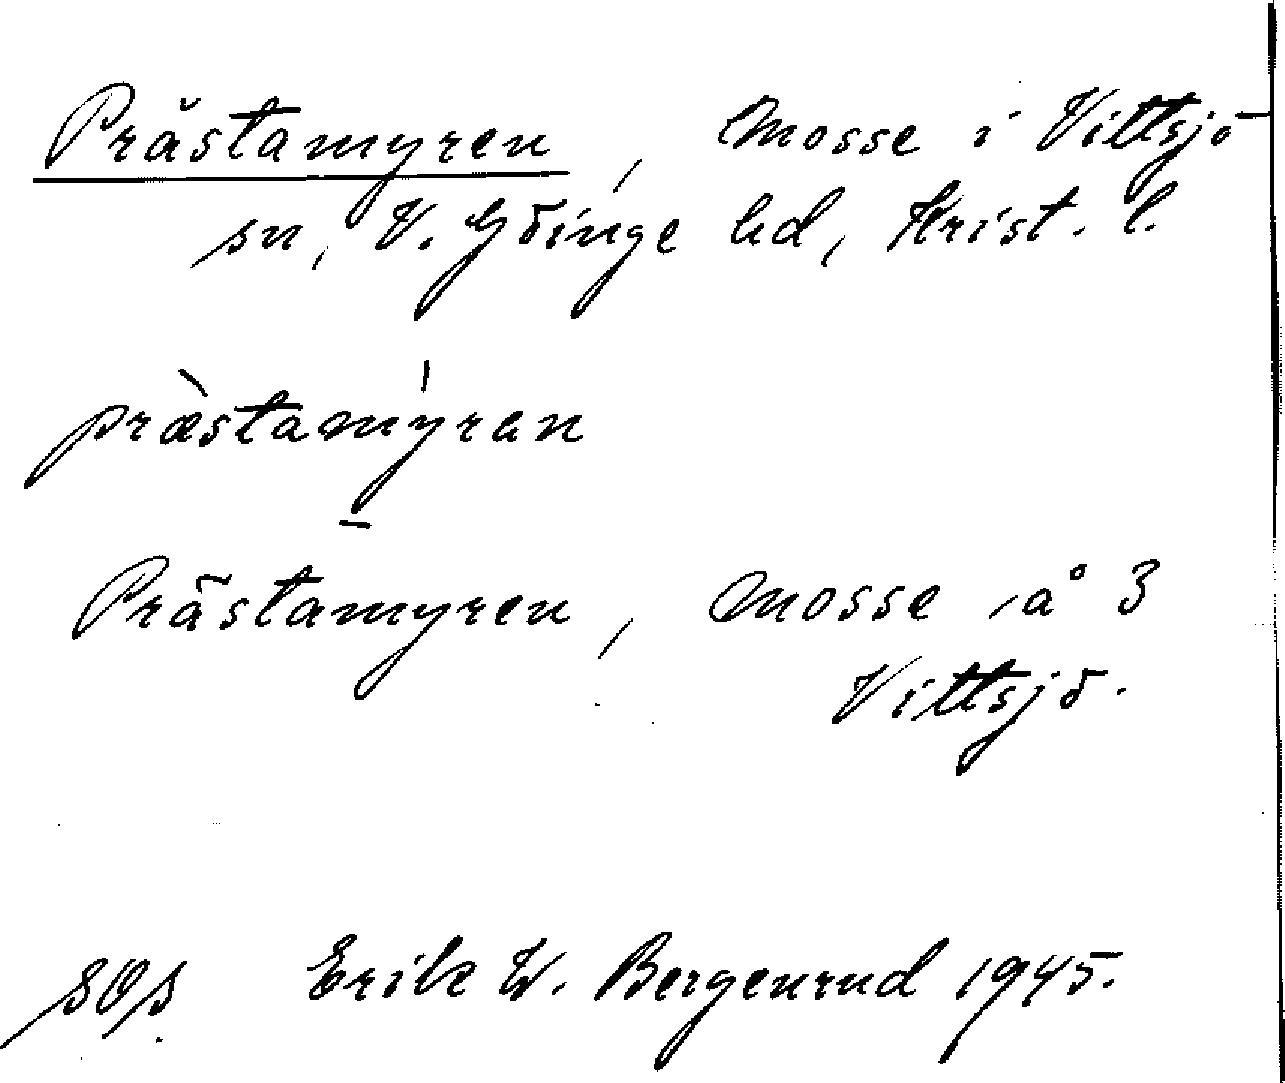 Prästamyren, Mosse i Vittsjö
sn, V. Göinge hd, Krist. l.
præ̀stamy̍ran
Prästamyren, Mosse å 3
Vittsjö.
Erik W. Bergenrud 1945.